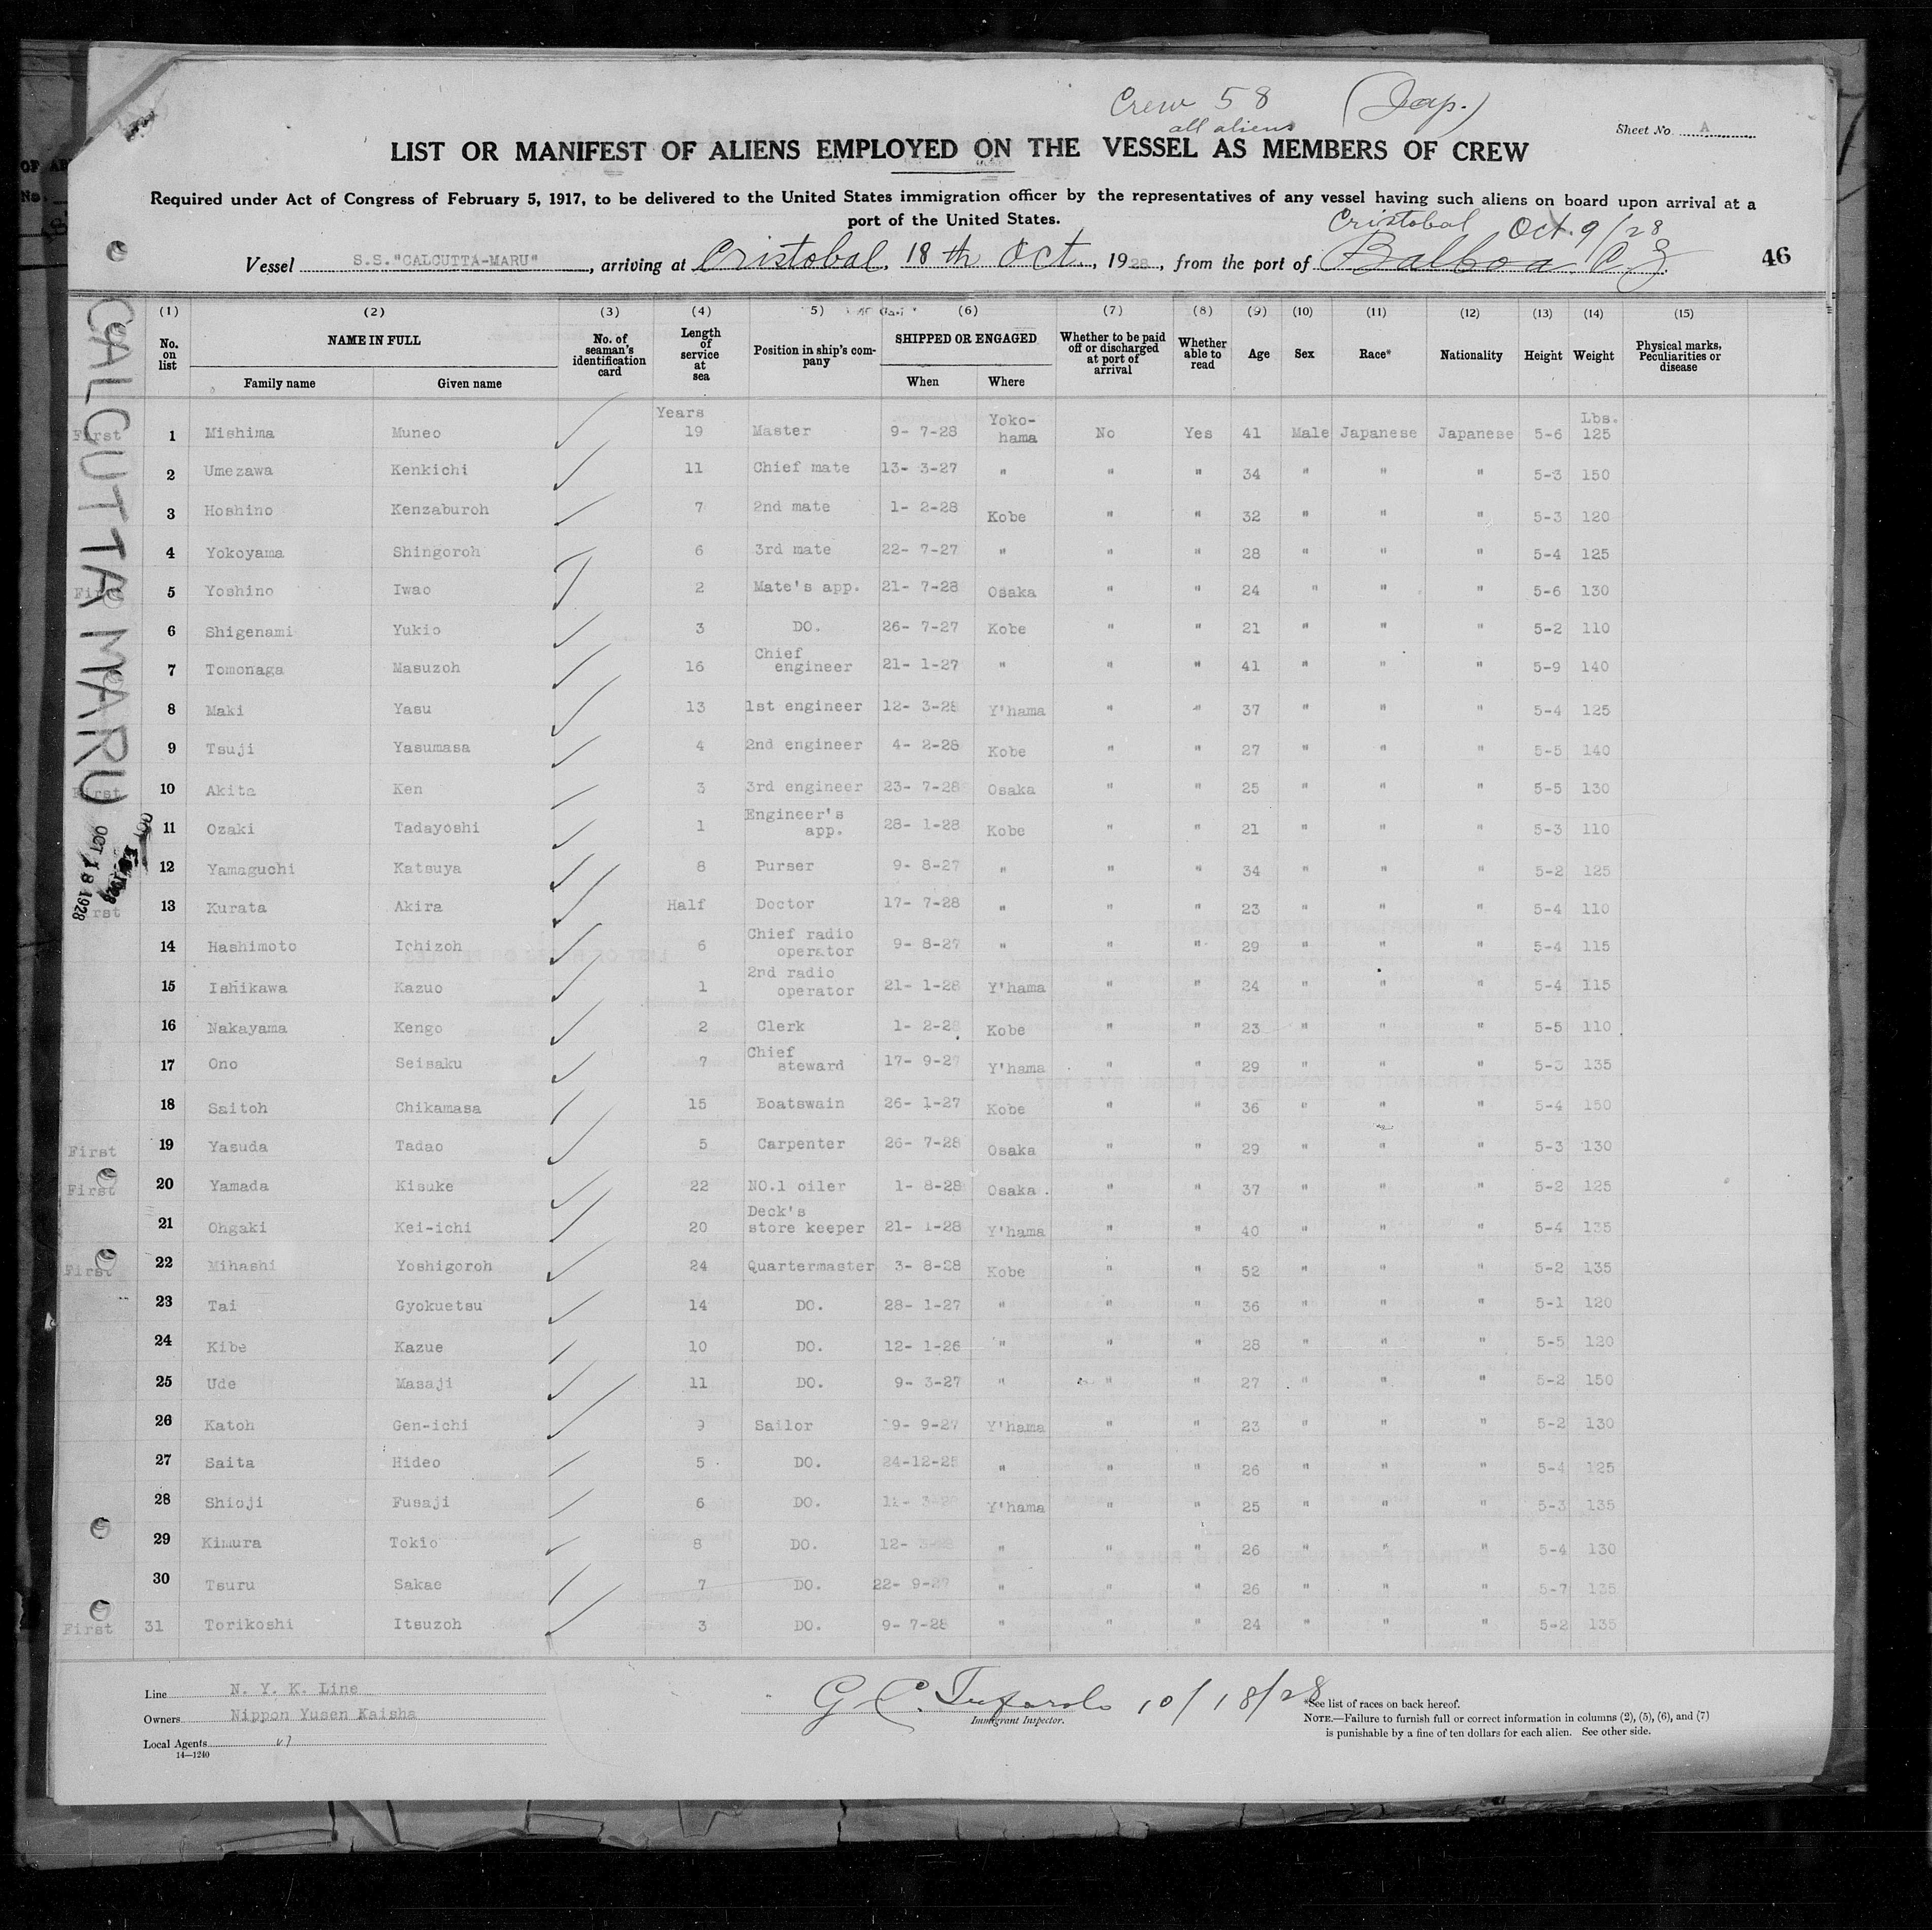 Crew 58 (Jap.)
all aliens
Sheet No. A
LIST OR MANIFEST OF ALIENS EMPLOYED ON THE VESSEL AS MEMBERS OF CREW
Required under Act of Congress of February 5, 1917, to be delivered to the United States immigration officer by the representatives of any vessel having such aliens on board upon arrival at a
port of the United States.
Cristobal Oct. 9/28
Vessel S.S."CALCUTTA-MARU", arriving at Cristobal, 18th Oct., 1928, from the port of Balboa C Z.
46
CALCUTTA MARU
OCT 18 1928
(1) (2) (3) (4) (5) (6) (7) (8) (9) (10) (11) (12) (13) (14) (15)
No. on list NAME IN FULL Family name Given name No. of seaman's identification card Length of service at sea Position in ship's company SHIPPED OR ENGAGED When Where Whether to be paid off or discharged at port of arrival Whether able to read Age Sex Race* Nationality Height Weight Physical marks, Peculiarities or disease
Years Lbs.
First 1 Mishima Muneo 19 Master 9- 7-28 Yoko-hama No Yes 41 Male Japanese Japanese 5-6 125
2 Umezawa Kenkichi 11 Chief mate 13- 3-27 " " " 34 " " " 5-3 150
3 Hoshino Kenzaburoh 7 2nd mate 1- 2-28 Kobe " " 32 " " " 5-3 120
4 Yokoyama Shingoroh 6 3rd mate 22- 7-27 " " " 28 " " " 5-4 125
First 5 Yoshino Iwao 2 Mate's app. 21- 7-28 Osaka " " 24 " " " 5-6 130
6 Shigenami Yukio 3 DO. 26- 7-27 Kobe " " 21 " " " 5-2 110
7 Tomonaga Masuzoh 16 Chief engineer 21- 1-27 " " " 41 " " " 5-9 140
8 Maki Yasu 13 1st engineer 12- 3-28 Y'hama " " 37 " " " 5-4 125
9 Tsuji Yasumasa 4 2nd engineer 4- 2-28 Kobe " " 27 " " " 5-5 140
First 10 Akita Ken 3 3rd engineer 23- 7-28 Osaka " " 25 " " " 5-5 130
11 Ozaki Tadayoshi 1 Engineer's app. 28- 1-28 Kobe " " 21 " " " 5-3 110
12 Yamaguchi Katsuya 8 Purser 9- 8-27 " " " 34 " " " 5-2 125
First 13 Kurata Akira Half Doctor 17- 7-28 " " " 23 " " " 5-4 110
14 Hashimoto Ichizoh 6 Chief radio operator 9- 8-27 " " " 29 " " " 5-4 115
15 Ishikawa Kazuo 1 2nd radio operator 21- 1-28 Y'hama " " 24 " " " 5-4 115
16 Nakayama Kengo 2 Clerk 1- 2-28 Kobe " " 23 " " " 5-5 110
17 Ono Seisaku 7 Chief steward 17- 9-27 Y'hama " " 29 " " " 5-3 135
18 Saitoh Chikamasa 15 Boatswain 26- 1-27 Kobe " " 36 " " " 5-4 150
First 19 Yasuda Tadao 5 Carpenter 26- 7-28 Osaka " " 29 " " " 5-3 130
First 20 Yamada Kisuke 22 NO.1 oiler 1- 8-28 Osaka. " " 37 " " " 5-2 125
21 Ohgaki Kei-ichi 20 Deck's store keeper 21- 1-28 Y'hama " " 40 " " " 5-4 135
First 22 Mihashi Yoshigoroh 24 Quartermaster 3- 8-28 Kobe " " 52 " " " 5-2 135
23 Tai Gyokuetsu 14 DO. 28- 1-27 " " " 36 " " " 5-1 120
24 Kibe Kazue 10 DO. 12- 1-26 " " " 28 " " " 5-5 120
25 Ude Masaji 11 DO. 9- 3-27 " " " 27 " " " 5-2 150
26 Katoh Gen-ichi 9 Sailor 19- 9-27 Y'hama " " 23 " " " 5-2 130
27 Saita Hideo 5 DO. 24-12-25 " " " 26 " " " 5-4 125
28 Shioji Fusaji 6 DO. 12- 3-28 Y'hama " " 25 " " " 5-3 135
29 Kimura Tokio 8 DO. 12- 3-28 " " " 26 " " " 5-4 130
30 Tsuru Sakae 7 DO. 22- 9-27 " " " 26 " " " 5-7 135
First 31 Torikoshi Itsuzoh 3 DO. 9- 7-28 " " " 24 " " " 5-2 135
Line N. Y. K. Line
Owners Nippon Yusen Kaisha
Local Agents "
14—1240
G C. 10/18/28
Immigrant Inspector.
*See list of races on back hereof.
NOTE.—Failure to furnish full or correct information in columns (2), (5), (6), and (7)
is punishable by a fine of ten dollars for each alien. See other side.